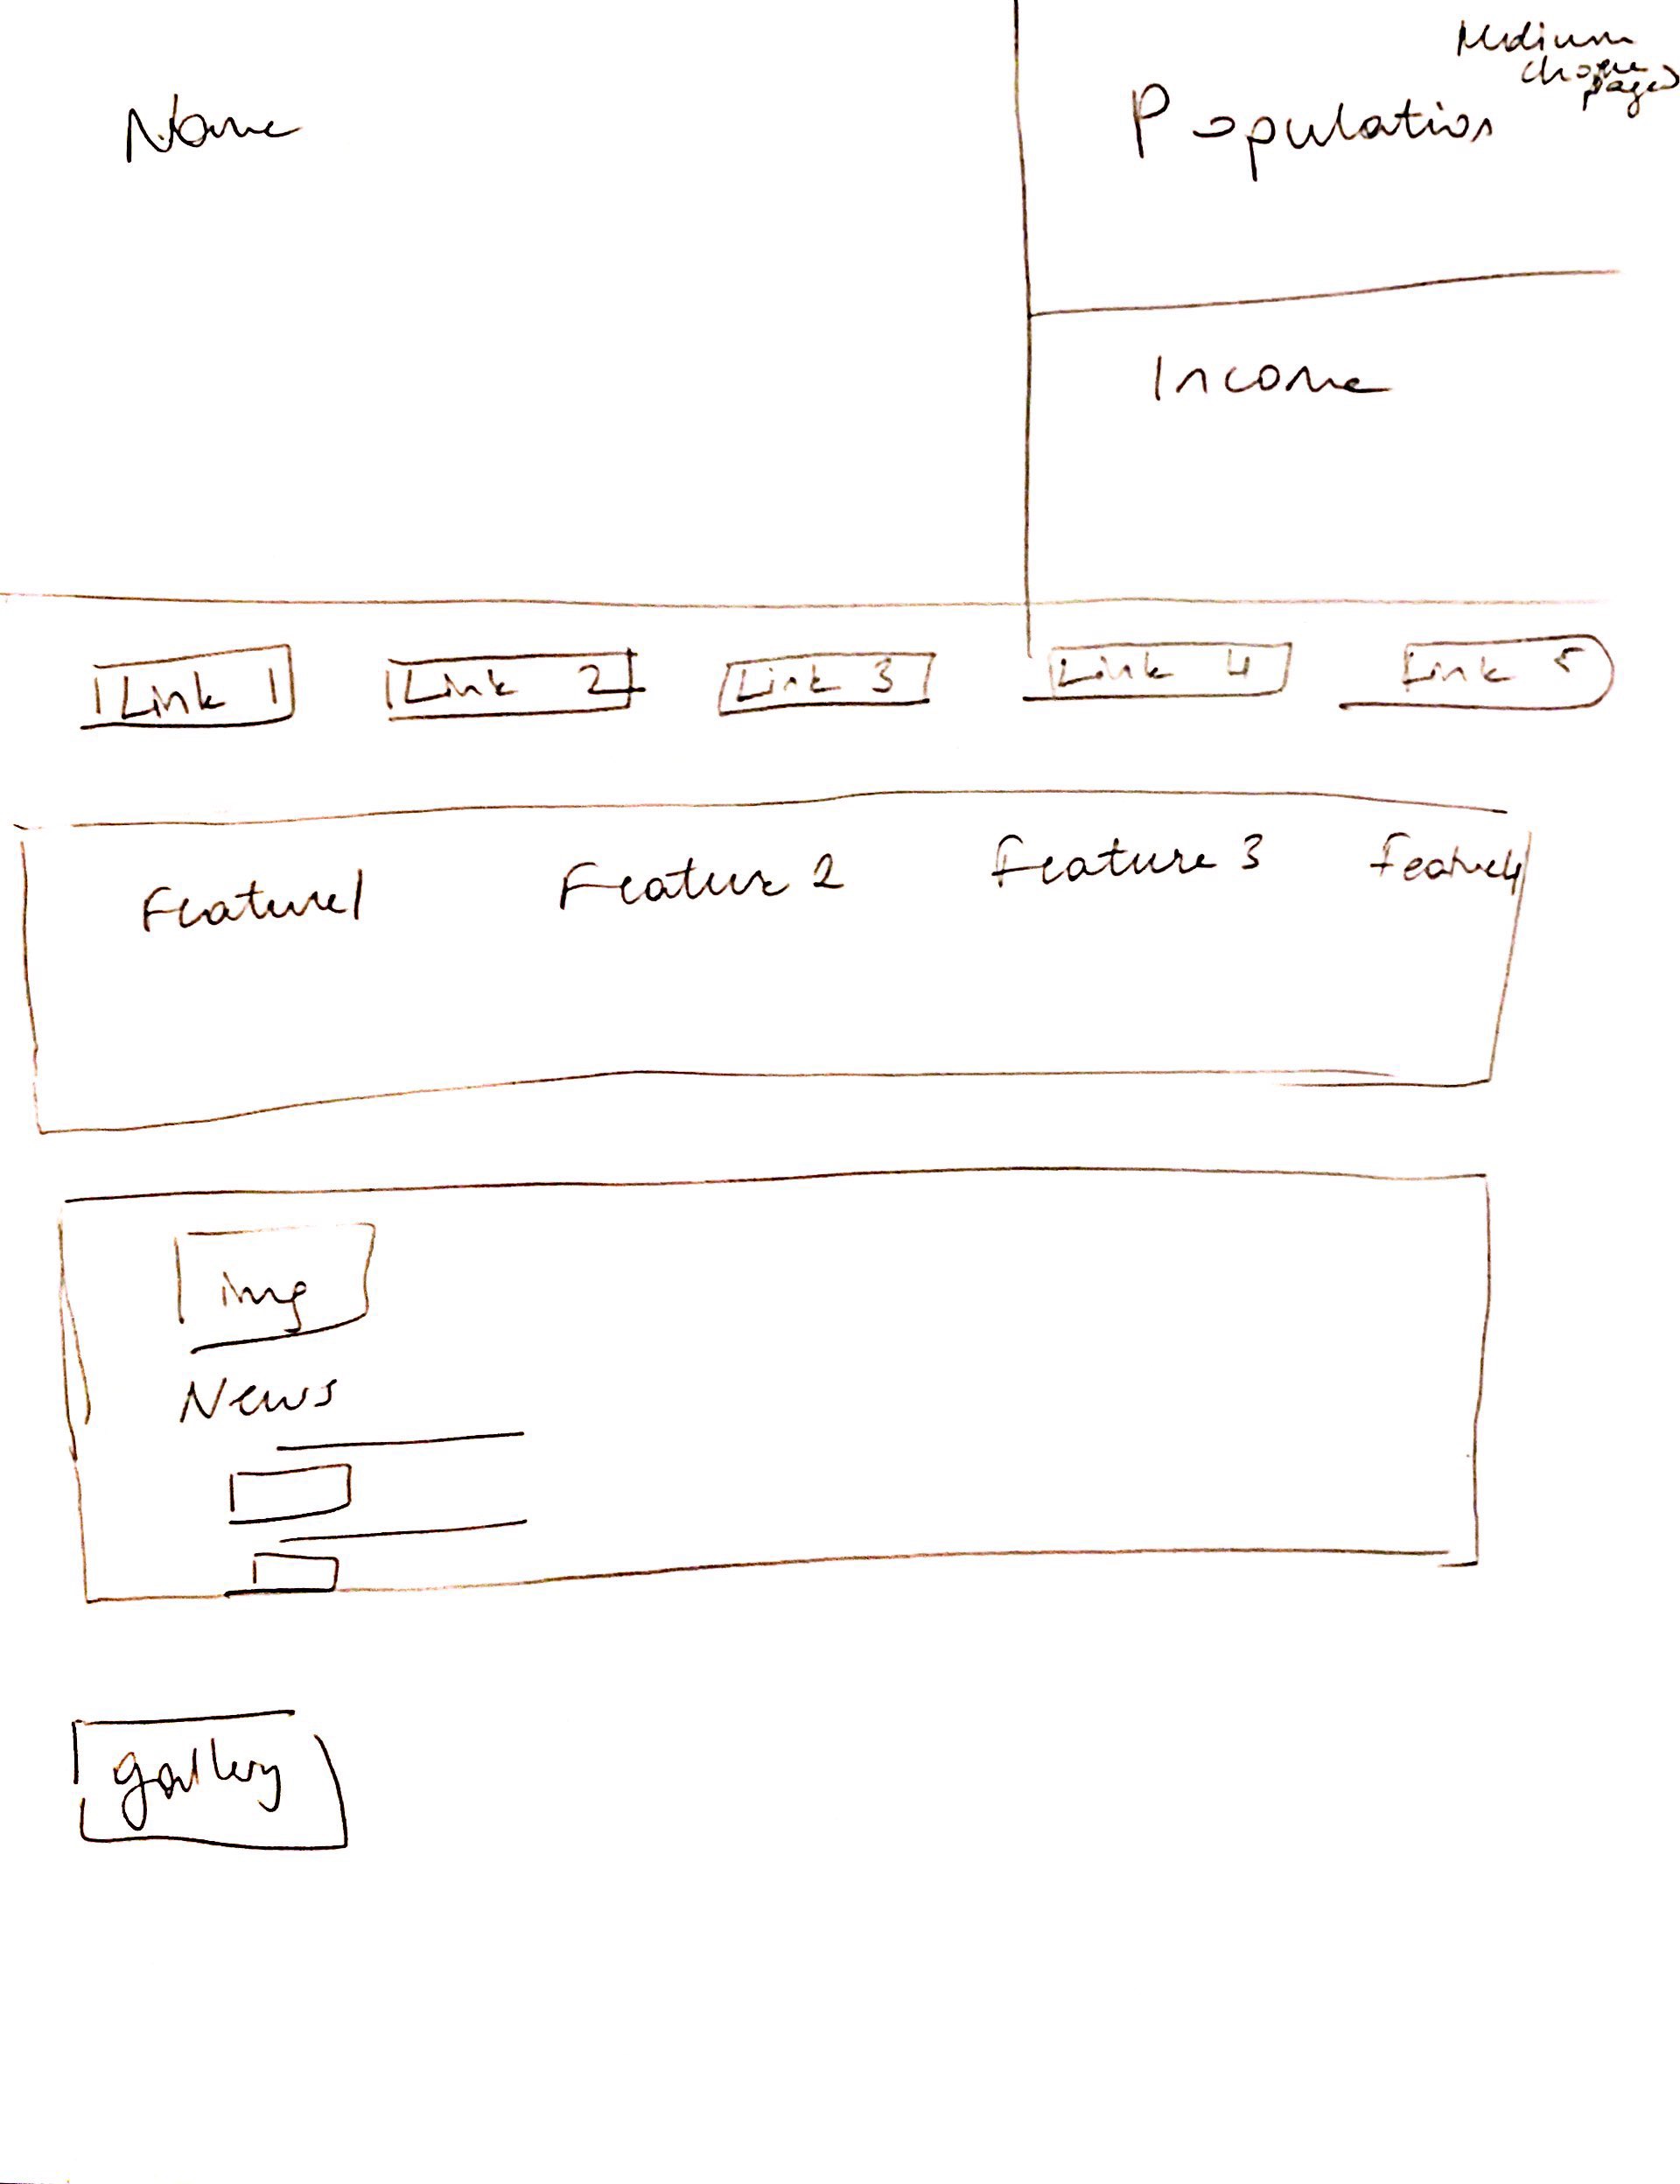 Medium
(home
page)
Name
Population
Income
Link 1
Link 2
Link 3
Link 4
Link 5
Feature 1
Feature 2
Feature 3
Feature 4
img
News
gallery